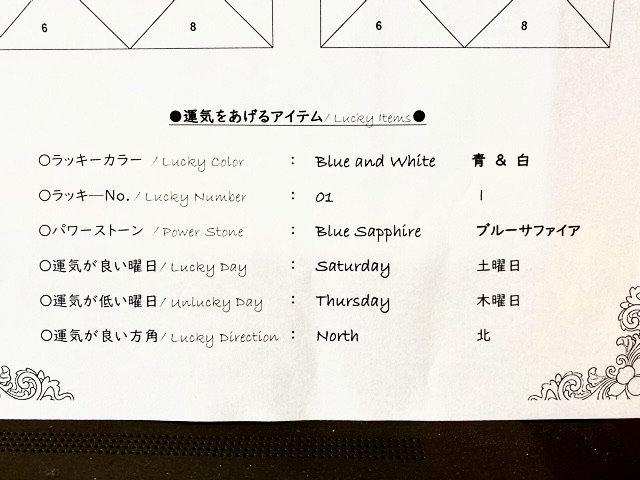 6 8 6 8
●運気をあげるアイテム/ Lucky Items●
〇ラッキーカラー / Lucky Color : Blue and White 青 & 白
〇ラッキ―No. / Lucky Number : 01 1
〇パワーストーン / Power Stone : Blue Sapphire ブルーサファイア
〇運気が良い曜日/ Lucky Day : Saturday 土曜日
〇運気が低い曜日/ Unlucky Day : Thursday 木曜日
〇運気が良い方角/ Lucky Direction : North 北